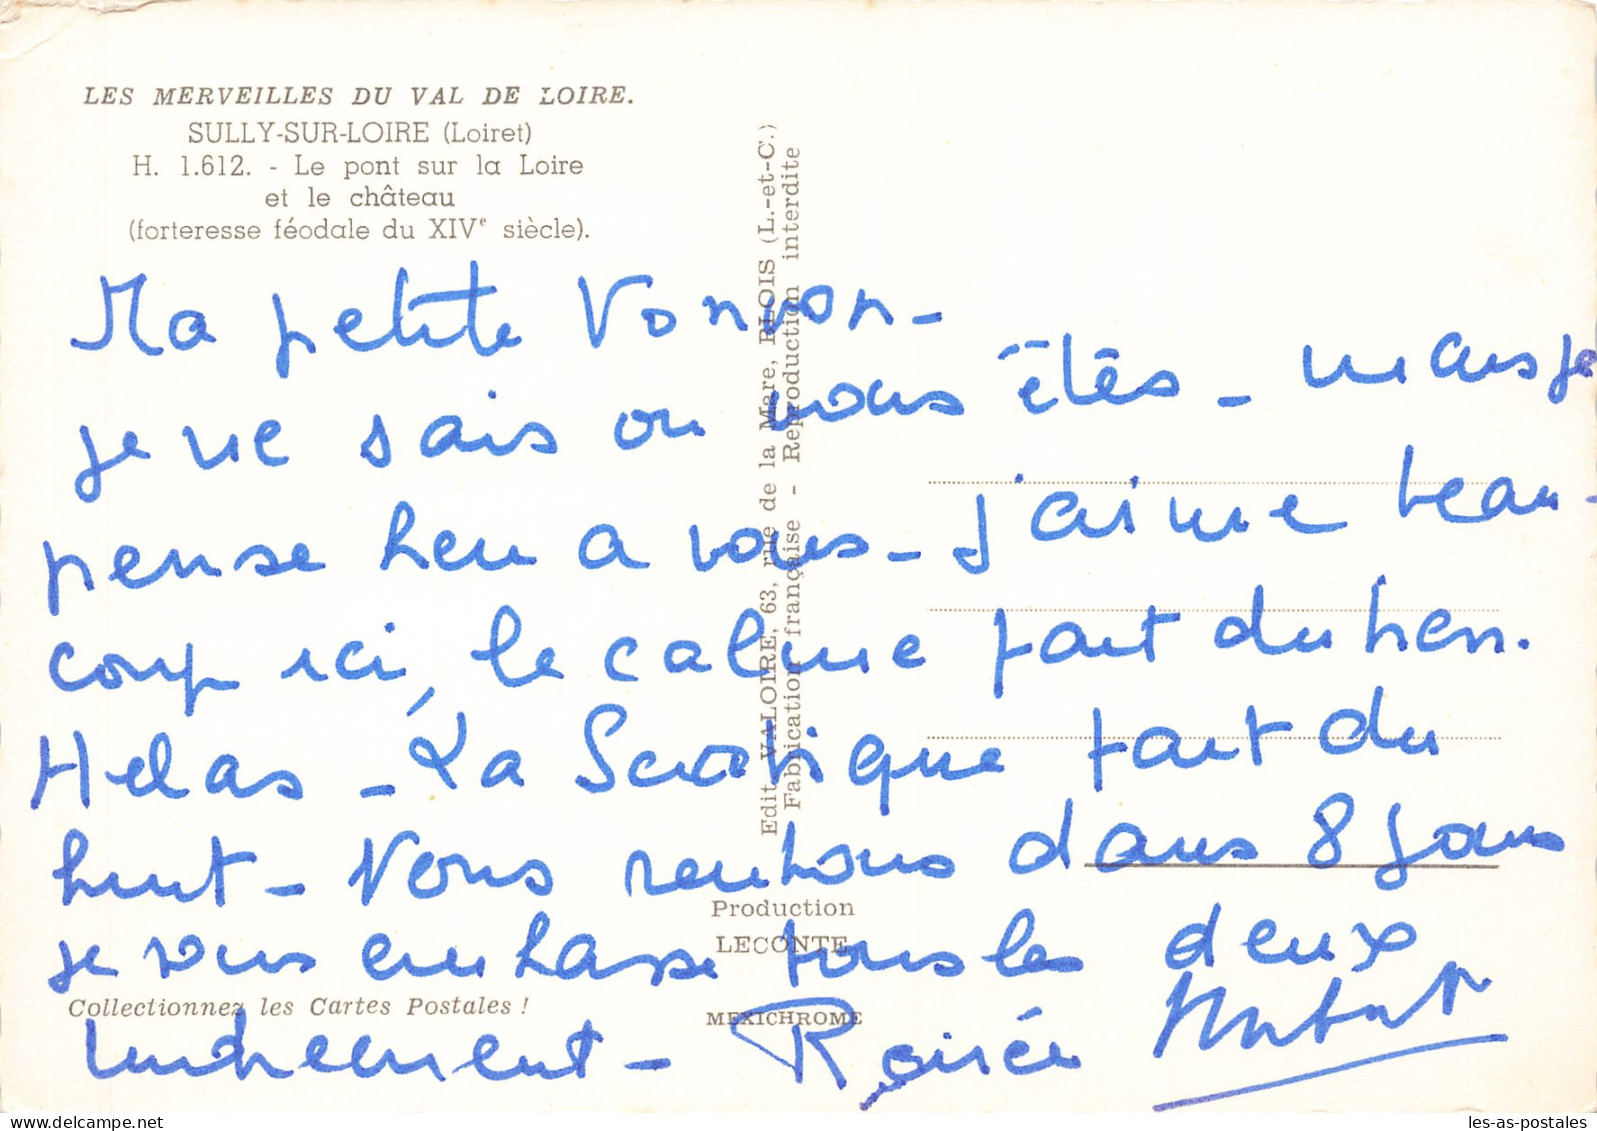 LES MERVEILLES DU VAL DE LOIRE.
SULLY-SUR-LOIRE (Loiret)
H. 1.612. - Le pont sur la Loire
et le château
(forteresse féodale du XIVe siècle).
Ma petite Vonvon -
je ne sais ou vous êtes - mais je
pense bien a vous - J'aime beau-
coup ici, le calme fait du bien.
Helas - La Sciatique fait du
bruit - Nous rentrons dans 8 jours
je vous embrasse tous les deux
tendrement - Renée
Edit. VALOIRE, 63, rue de la Mare, BLOIS (L.-et-C.)
Fabrication française - Reproduction interdite
Production
LECONTE
MEXICHROME
Collectionnez les Cartes Postales !
les-as-postales